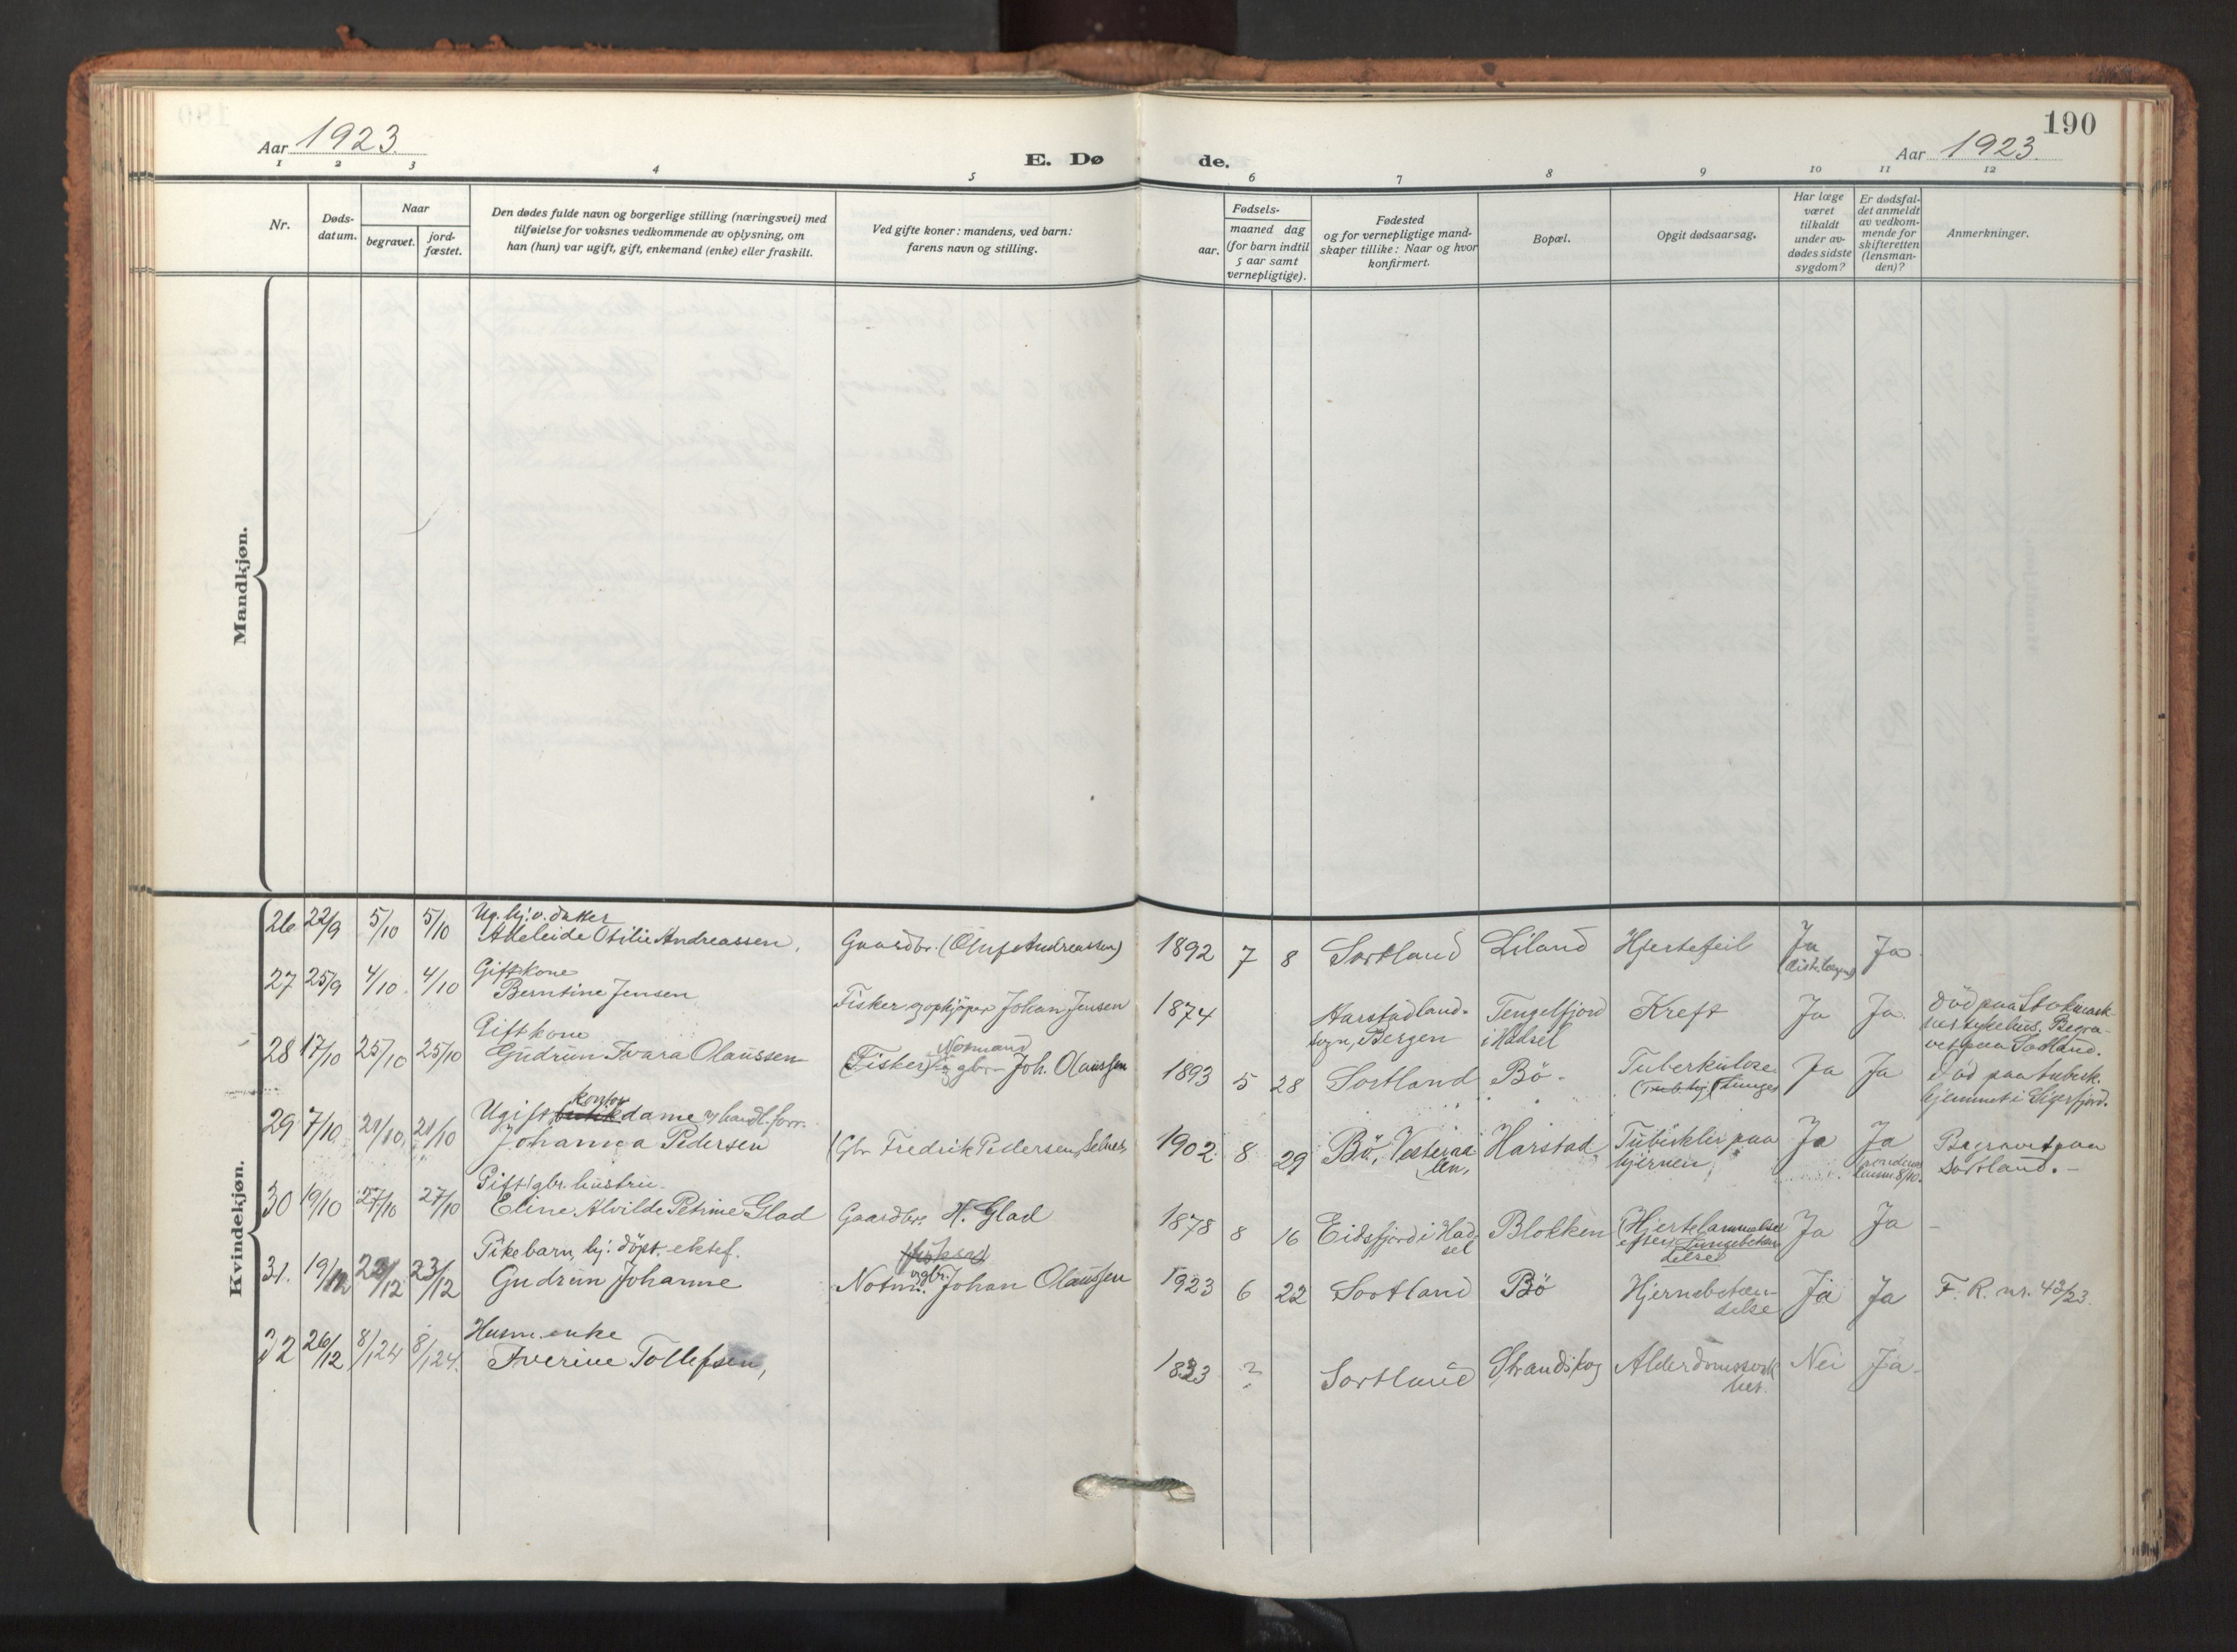 190
Aar 1923. E. Døde. Aar 1923.
1 2 3 4 5 6 7 8 9 10 11 12
Nr.
Døds-
datum.
Naar
begravet.
jord-
fæstet.
Den dødes fulde navn og borgerlige stilling (næringsvei) med
tilføielse for voksnes vedkommende av oplysning, om
han (hun) var ugift, gift, enkemand (enke) eller fraskilt.
Ved gifte koner: mandens, ved barn:
farens navn og stilling.
Fødsels-
aar.
maaned dag
(for barn indtil
5 aar samt
vernepligtige).
Fødested
og for vernepligtige mand-
skaper tillike: Naar og hvor
konfirmert.
Bopæl.
Opgit dødsaarsag.
Har læge
været
tilkaldt
under av-
dødes sidste
sygdom?
Er dødsfal-
det anmeldt
av vedkom-
mende for
skifteretten
(lensman-
den)?
Anmerkninger.
Mandkjøn.
Kvindekjøn.
Ug. hj. v. datter
26 22/9 5/10 5/10 Adeleide Otilie Andreassen, Gaardbr. (Oluf Andreassen) 1892 7 8 Sortland Liland Hjertefeil Ja Ja.
Gift kone
27 25/9 4/10 4/10 Berntine Jensen Fisker og opkjöper Johan Jensen 1874 Harstad land-
sogn, Bergen
Tengelfjord
i Hadsel
Kreft Ja Ja.
Död paa Stokmark-
nes sykehus. Begra-
vet paa Sortland.
Gift kone
28 17/10 25/10 25/10 Gudrun Ivara Olaussen (Fisker) Notmand og gbr. Joh. Olaussen 1893 5 28 Sortland Bö Tuberkulose Ja Ja
Död paa tuberk.
hjemmet i Sigerfjord.
Ugift kontordame og handl. forr.
29 7/10 21/10 21/10 Johanna Pedersen (Gbr. Fredrik Pedersen, 1902 8 29 Bö, Vesteraa-
len,
Harstad
Tuberkler paa
hjernen,
Ja Ja
Begravet paa
Sortland.
Gift gbr. hustru
30 19/10 27/10 27/10 Eline Alvilde Petrine Glad Gaardbr. H. Glad 1878 8 16 Eidsfjord i Had-
sel
Blokken
(Hjertelammelse
efter) Lungebeten-
delse
Ja Ja –
Pikebarn, hj. döpt. ektef.
31. 19/12 23/12 23/12 Gudrun Johanne Notm. og gbr. Johan Olaussen 1923 6 22 Sortland Bö Hjernebeten-
delse
Ja Ja F. R. nr. 43/23.
Husm. enke
32 26/12 8/1 24 8/1 24. Iverine Tollefsen, 1833 ? Sortland Strandskog Alderdomssvak-
het.
Nei Ja.